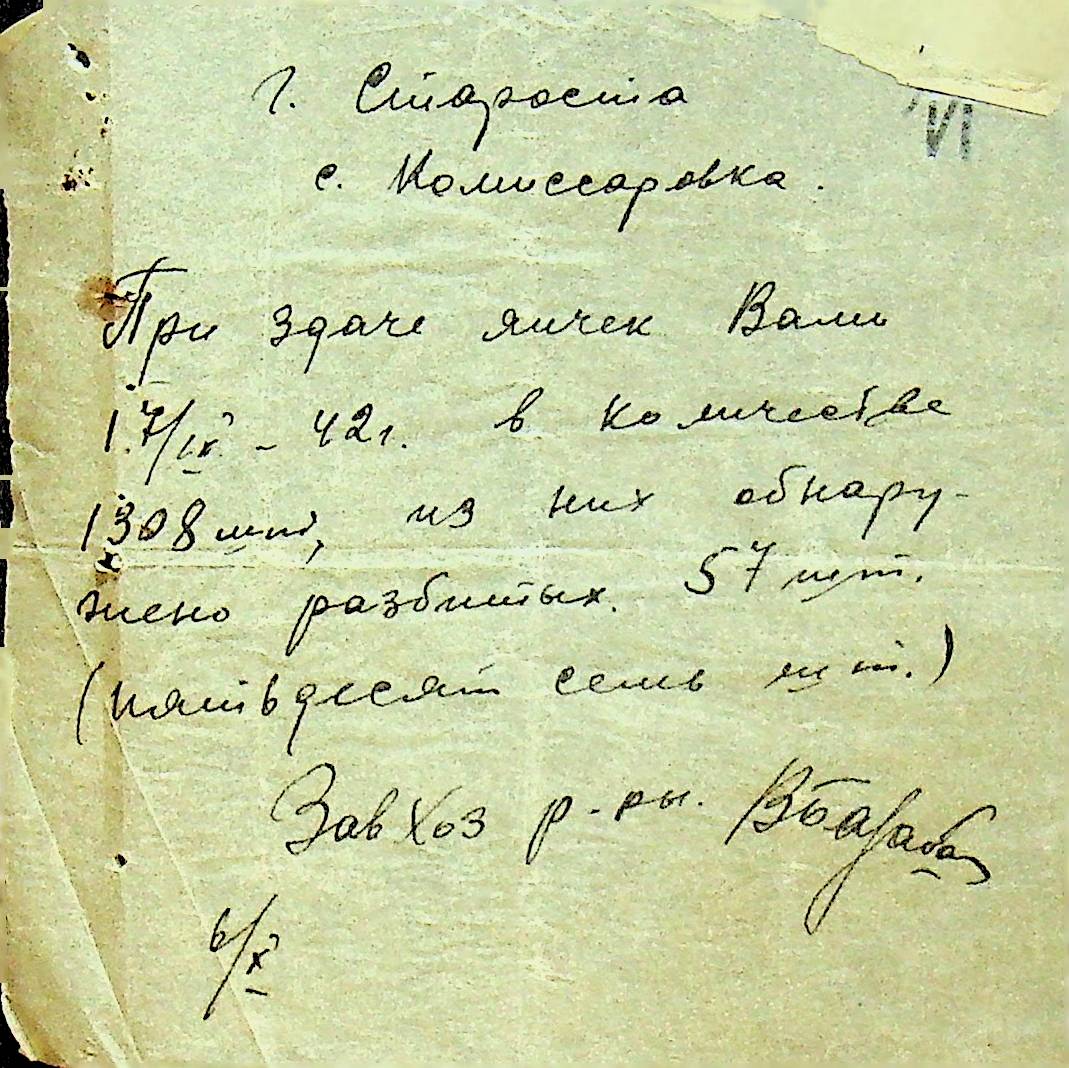 г. Староста
с. Комиссаровка.
При здаче яичек Вами
17/IX - 42 г. в количестве
1308 шт, из них обнару-
жено разбитых. 57 шт.
(пятьдесят семь шт.)
ЗавХоз р-ры.
6/X